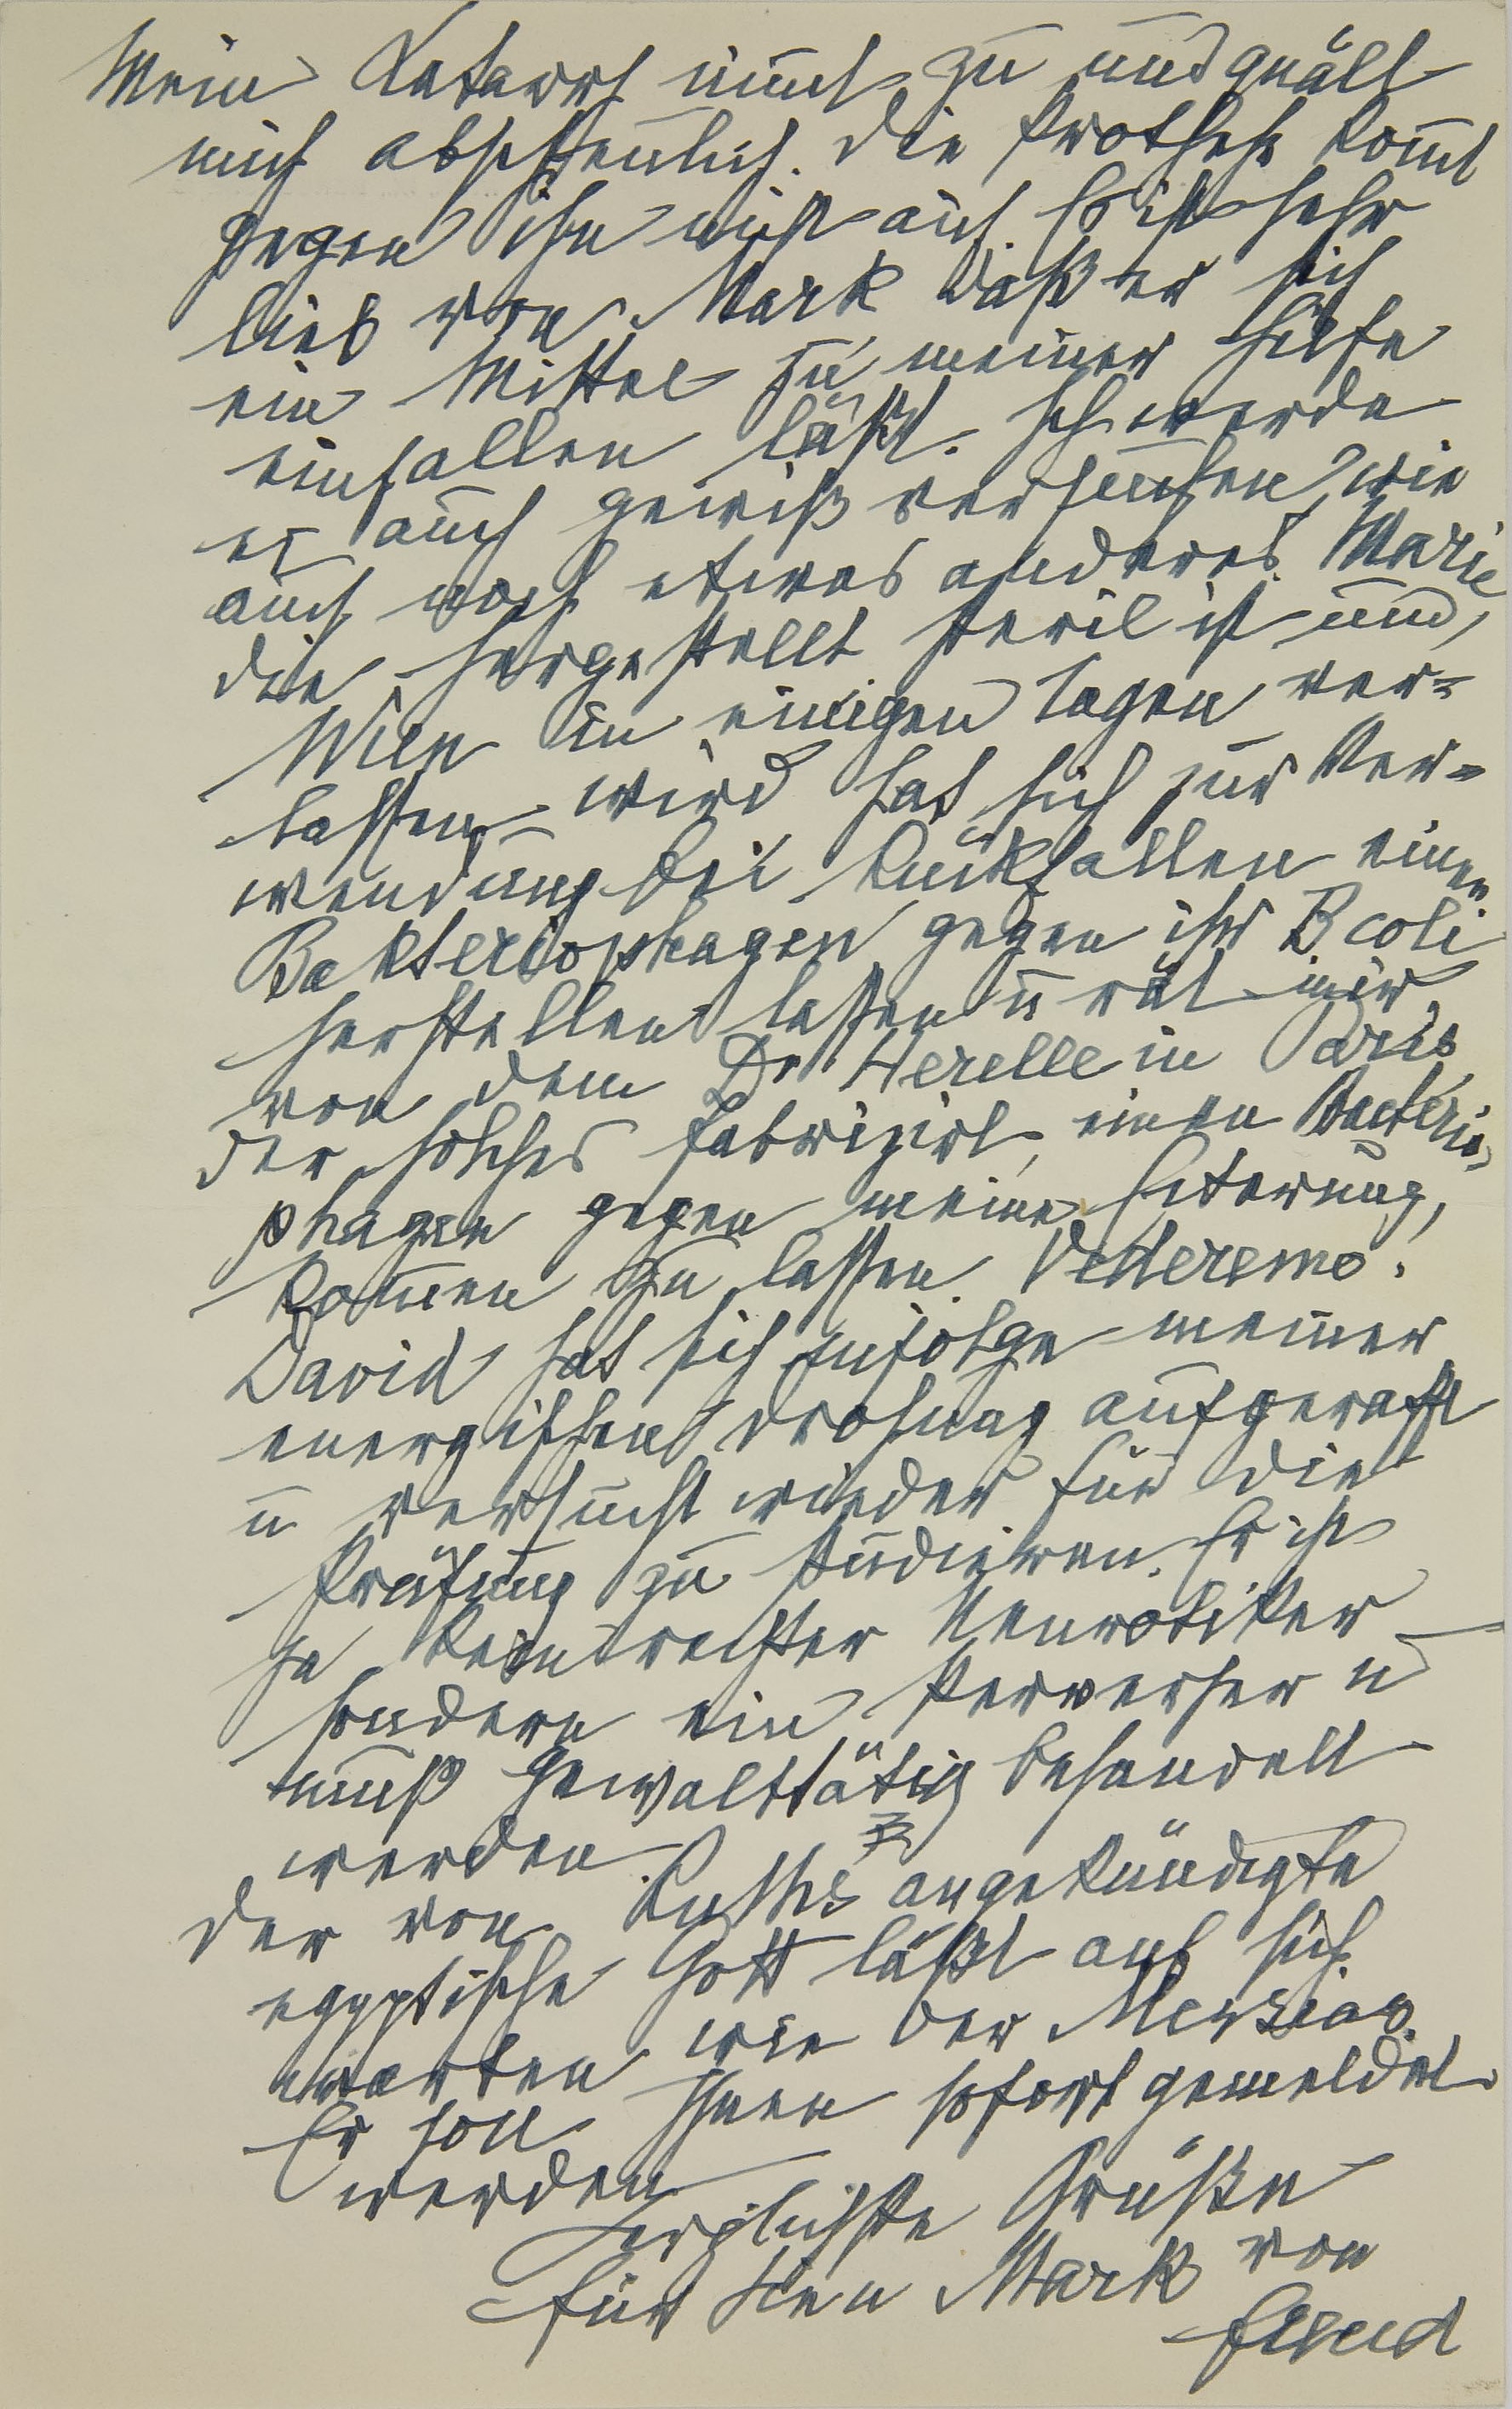 Mein Katarrh nim̄t zu und quält
mich abscheulich. Die Prothese kom̄t
gegen ihn nicht auf. Es ist sehr
lieb von Mark daß er sich
ein Mittel zu meiner Hilfe
einfallen läßt. Ich werde
es auch gewiß versuchen, wie
auch noch etwas anderes. Marie
die hergestellt steril ist und
Wien in einigen Tagen ver-
lassen wird hat sich zur Ver-
wendung bei Rückfällen einen
Bakteriophagen gegen ihr B coli
herstellen lassen u rät mir,
von dem Dr Herelle in Paris,
der solches fabrizirt, einen Bacterio-
phagen gegen meine Eiterung,
kom̄en zu lassen. Vederemo.
David hat sich infolge meiner
energischen Drohung aufgerafft
u versucht wieder für die
Prüfung zu studieren. Er ist
ja kein rechter Neurotiker
sondern ein Perverser u
muß gewalttätig behandelt
werden.
Der von Ruths angekündigte
egyptische Gott läßt auf sich
warten wie der Messias.
Er soll Ihnen sofort gemeldet
werden
Herzlichste Grüße
für Sie u Mark von
Freud